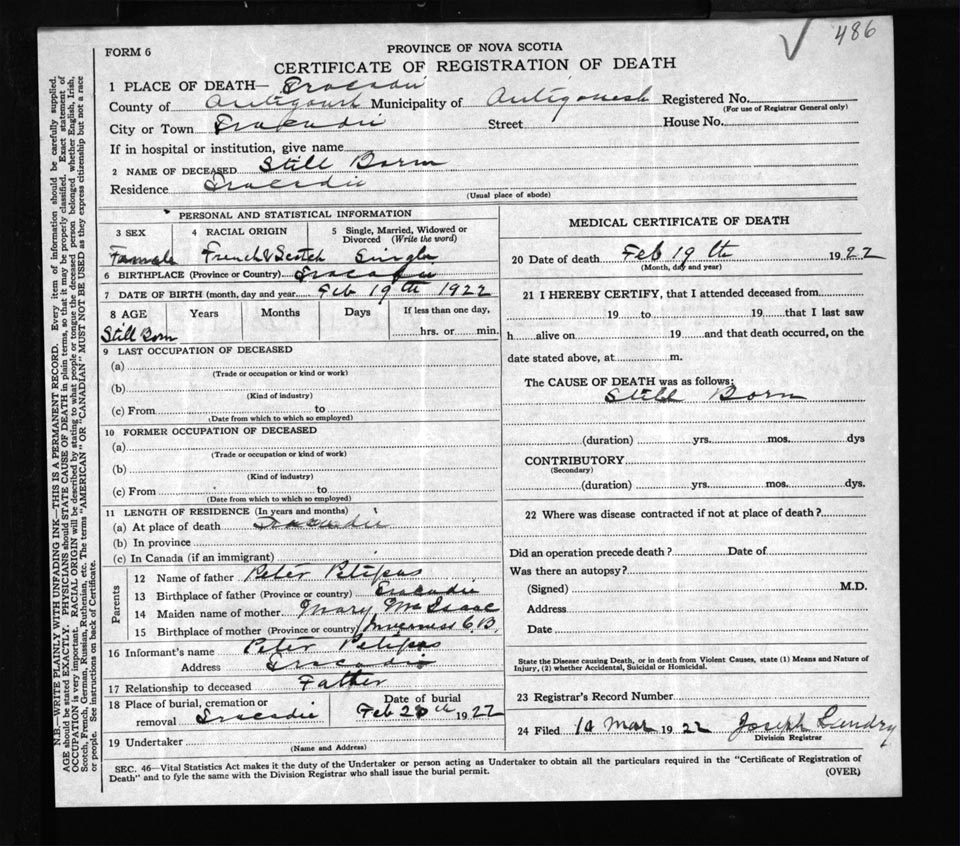 486
FORM 6
PROVINCE OF NOVA SCOTIA
CERTIFICATE OF REGISTRATION OF DEATH
1 PLACE OF DEATH— Tracadie
County of Antigonish Municipality of Antigonish Registered No.
(For use of Registrar General only)
City or Town Tracadie Street House No.
If in hospital or institution, give name
2 NAME OF DECEASED Still Born
Residence Tracadie
(Usual place of abode)
PERSONAL AND STATISTICAL INFORMATION
3 SEX 4 RACIAL ORIGIN 5 Single, Married, Widowed or
Divorced (Write the word)
Famale French & Scotch Single
6 BIRTHPLACE (Province or Country) Tracadie
7 DATE OF BIRTH (month, day and year Feb 19th 1922
8 AGE Years Months Days If less than one day,
Still Born hrs. or min.
9 LAST OCCUPATION OF DECEASED
(a)
(Trade or occupation or kind or work)
(b)
(Kind of industry)
(c) From to
(Date from which to which so employed)
10 FORMER OCCUPATION OF DECEASED
(a)
(Trade or occupation or kind of work)
(b)
(Kind of industry)
(c) From to
(Date from which to which so employed)
11 LENGTH OF RESIDENCE (In years and months)
(a) At place of death Tracadie
(b) In province
(c) In Canada (if an immigrant)
Parents
12 Name of father Peter Petipas
13 Birthplace of father (Province or country) Tracadie
14 Maiden name of mother Mary McIsaac
15 Birthplace of mother (Province or country Inverness C.B.
16 Informant's name Peter Petipas
Address Tracadie
17 Relationship to deceased Father
18 Place of burial, cremation or Date of burial
removal Tracadie Feb 20th 1922
19 Undertaker
(Name and Address)
MEDICAL CERTIFICATE OF DEATH
20 Date of death Feb 19th 1922
(Month, day and year)
21 I HEREBY CERTIFY, that I attended deceased from
19 to 19 that I last saw
h alive on 19 and that death occurred, on the
date stated above, at m.
The CAUSE OF DEATH was as follows:
Still Born
(duration) yrs. mos. dys
CONTRIBUTORY
(Secondary)
(duration) yrs. mos. dys.
22 Where was disease contracted if not at place of death?
Did an operation precede death? Date of
Was there an autopsy?
(Signed) M.D.
Address
Date
State the Disease causing Death, or in death from Violent Causes, state (1) Means and Nature of
Injury, (2) whether Accidental, Suicidal or Homicidal.
23 Registrar's Record Number
24 Filed 10 Mar 1922 Joseph Landry
Division Registrar
SEC. 46—Vital Statistics Act makes it the duty of the Undertaker or person acting as Undertaker to obtain all the particulars required in the "Certificate of Registration of
Death" and to fyle the same with the Division Registrar who shall issue the burial permit. (OVER)
N.B.—WRITE PLAINLY WITH UNFADING INK—THIS IS A PERMANENT RECORD. Every item of information should be carefully supplied.
AGE should be stated EXACTLY. PHYSICIANS should STATE CAUSE OF DEATH in plain terms, so that it may be properly classified. Exact statement of
OCCUPATION is very important. RACIAL ORIGIN will be described by stating to what people or tongue the deceased person belonged whether English, Irish,
Scotch, French, German, Russian, Ruthenian, etc. The terms "AMERICAN" OR "CANADIAN" MUST NOT BE USED as they express citizenship but not a race
or people. See instructions on back of Certificate.